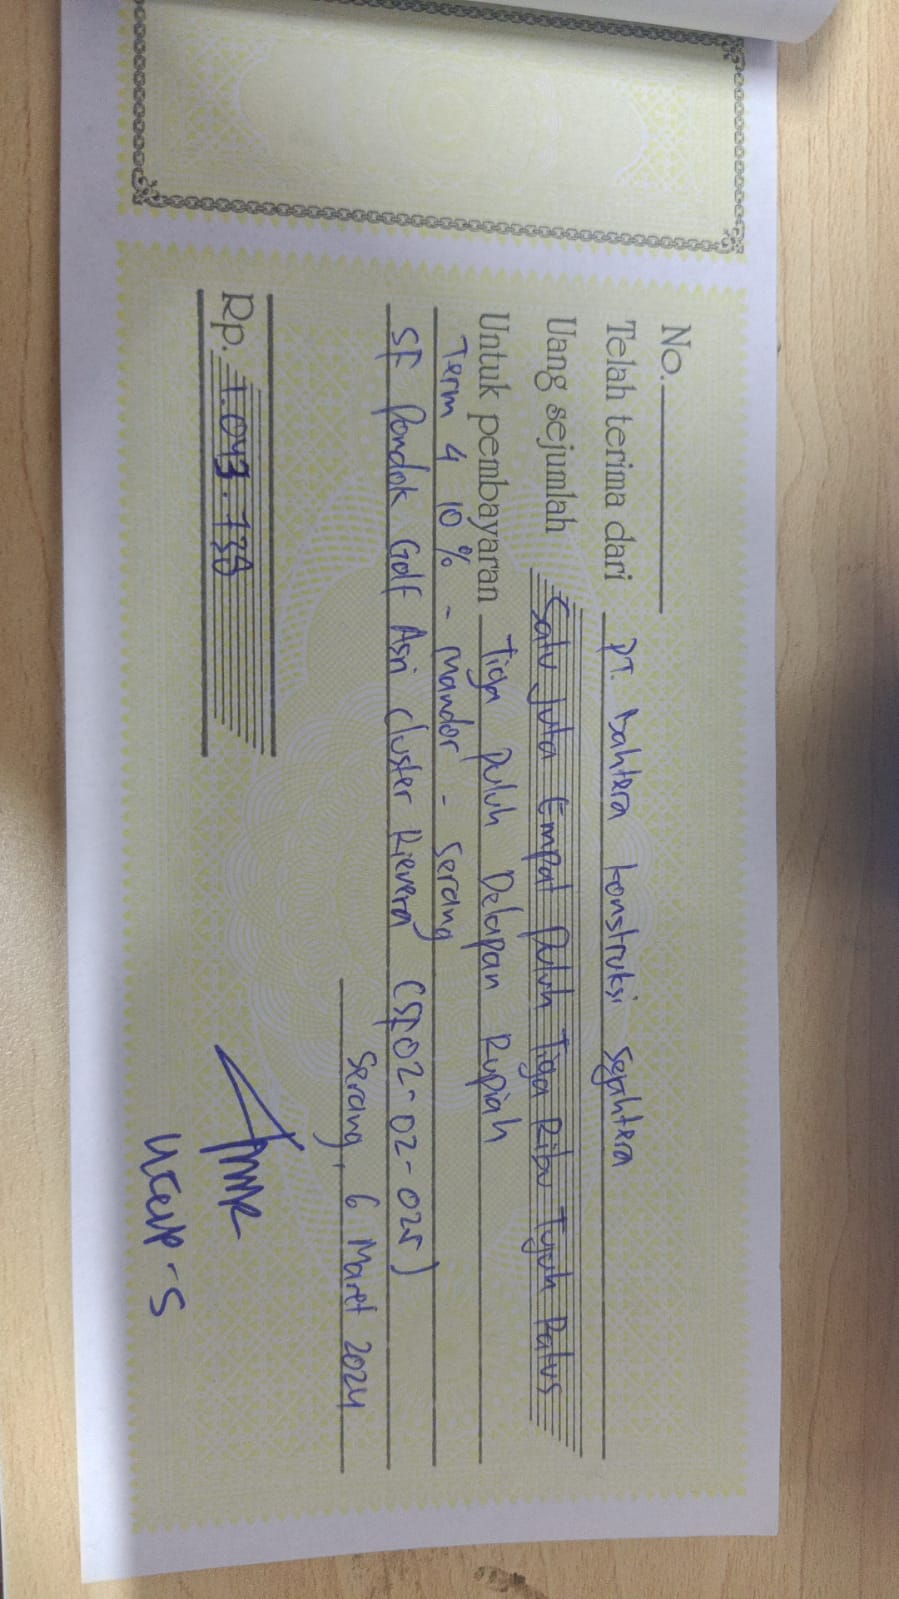 No.
Telah terima dari PT. Bahtera konstruksi Sejahtera
Uang sejumlah Satu Juta Empat Puluh Tiga Ribu Tujuh Ratus
Untuk pembayaran Tiga Puluh Delapan Rupiah
Term 4 10% - Mandor - Serang
SF Pondok Golf Asri Cluster Rievera (SF02-02-025)
Serang, 6 Maret 2024
Rp. 1.043.738
Ucup-S